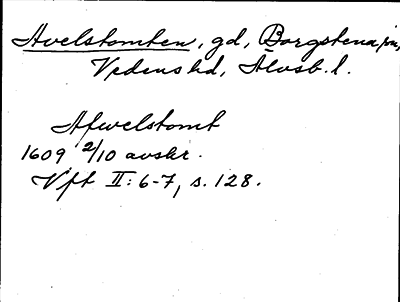 Avelstomten, gd, Borgstena sn,
Vedens hd, Älvsb. l.
Afwelstomt
1609 2/10 avskr.
Vft II: 6-7, s. 128.